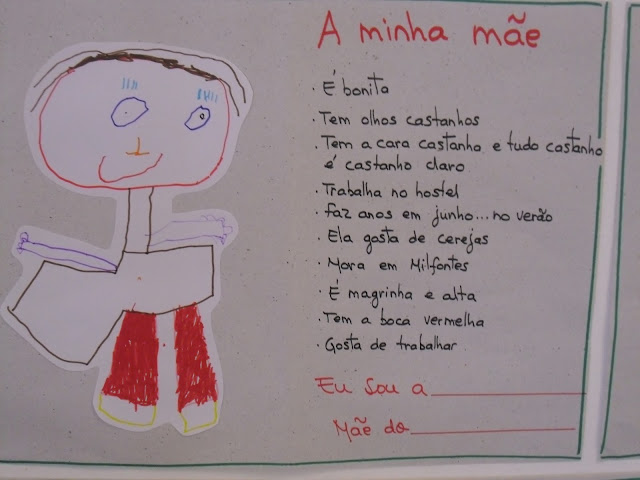 A minha mãe
· É bonita
· Tem olhos castanhos
· Tem a cara castanha e tudo castanho
é castanho claro
· Trabalha no hostel
· faz anos em junho... no verão
· Ela gosta de cerejas
· Mora em Milfontes
· É magrinha e alta
· Tem a boca vermelha
· Gosta de trabalhar
Eu sou a
Mãe do